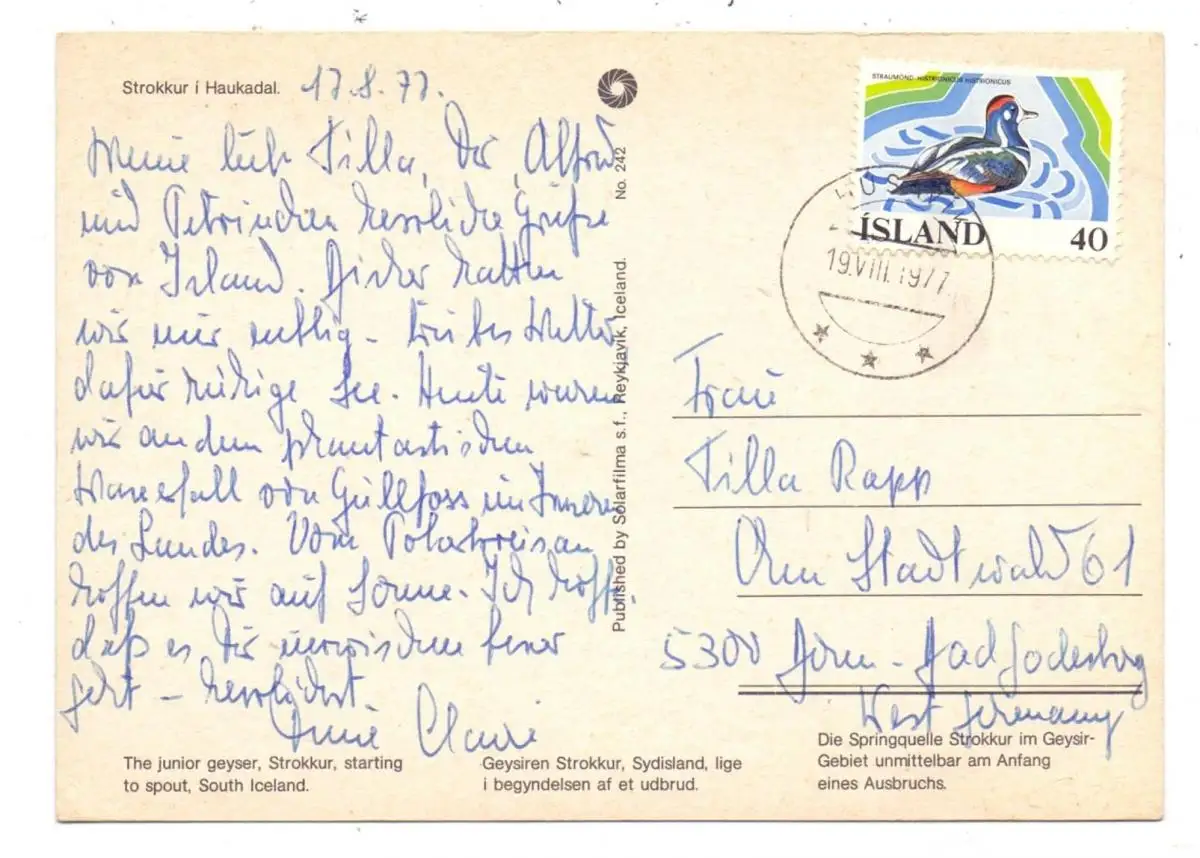 Strokkur í Haukadal. 17.8.77.
Meine liebe Tilla, Dir, Alfred
und Petrinchen herzliche Grüße
von Island. Bisher hatten
wir nur neblig-trübes Wetter
dafür ruhige See. Heute waren
wir an dem phantastischen
Wasserfall von Gullfoss im Inneren
des Landes. Vom Polarkreis an
hoffen wir auf Sonne. Ich hoffe,
daß es Dir inzwischen besser
geht – herzlichst
Deine Claire
No. 242
Published by Solarfilma s.f., Reykjavik, Iceland.
STRAUMÖND-HISTRIONICUS HISTRIONICUS
ÍSLAND 40
19.VIII.1977
Frau
Tilla Rapp
Am Stadtwald 61
5300 Bonn-Bad Godesberg
West Germany
The junior geyser, Strokkur, starting
to spout, South Iceland.
Geysiren Strokkur, Sydisland, lige
i begyndelsen af et udbrud.
Die Springquelle Strokkur im Geysir-
Gebiet unmittelbar am Anfang
eines Ausbruchs.